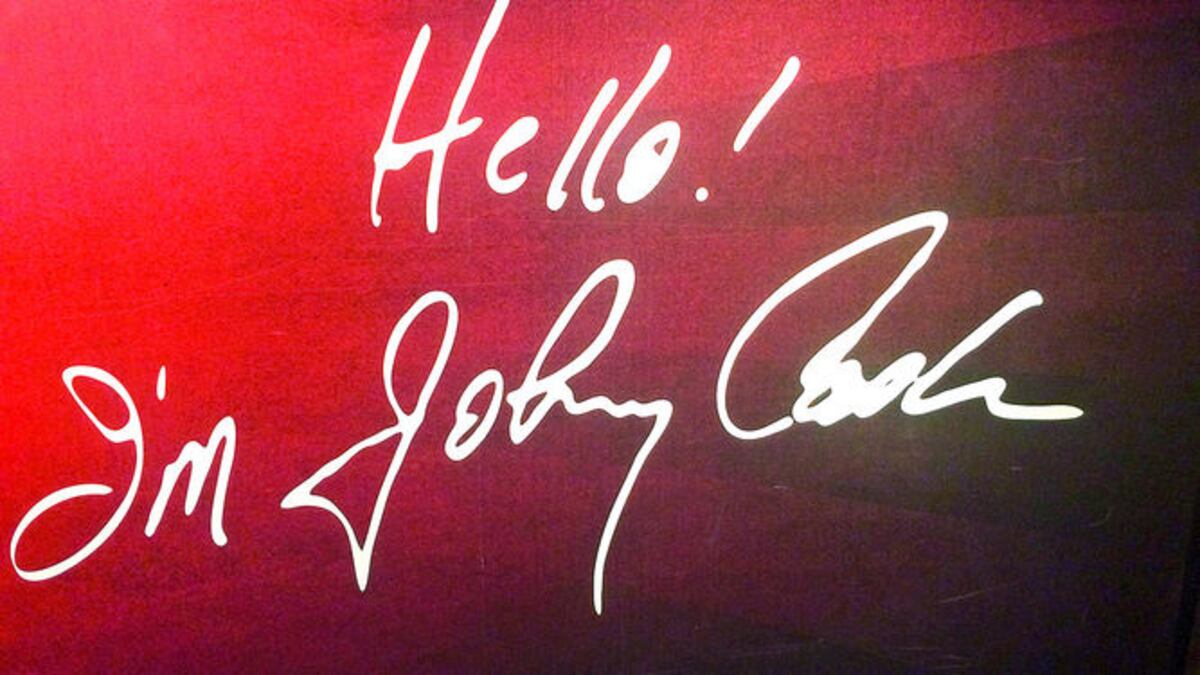 Hello!
I'm Johnny Cash